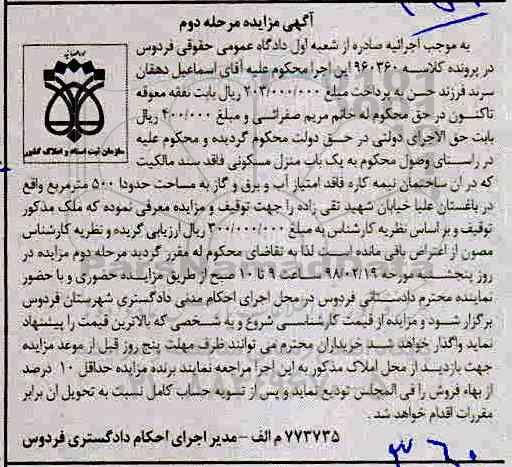 آگهی مزایده مرحله دوم
به موجب اجرائیه صادره از شعبه اول دادگاه عمومی حقوقی فردوس
در پرونده کلاسه ۹۶۰۳۶۰ این اجرا محکوم علیه آقای اسماعیل دهقان
سرند فرزند حسن به پرداخت مبلغ ۲۰۳/۰۰۰/۰۰۰ ریال بابت نفقه معوقه
تاکنون در حق محکوم له خانم مریم صفرائی و مبلغ ۴۰۰/۰۰۰ ریال
بابت حق الاجرای دولتی در حق دولت محکوم گردیده و محکوم علیه
در راستای وصول محکوم به یک باب منزل مسکونی فاقد سند مالکیت
که در آن ساختمان نیمه کاره فاقد امتیاز آب و برق و گاز به مساحت حدودا ۵۰۰ مترمربع واقع
در باغستان علیا خیابان شهید تقی زاده را جهت توقیف و مزایده معرفی نموده که ملک مذکور
توقیف و بر اساس نظریه کارشناس به مبلغ ۳۰۰/۰۰۰/۰۰۰ ریال ارزیابی گریده و نظریه کارشناس
مصون از اعتراض باقی مانده است لذا به تقاضای محکوم له مقرر گردید مرحله دوم مزایده در
روز پنجشنبه مورخه ۹۸/۰۲/۱۹ ساعت ۹ تا ۱۰ صبح از طریق مزایده حضوری و با حضور
نماینده محترم دادستانی فردوس در محل اجرای احکام مدنی دادگستری شهرستان فردوس
برگزار شود و مزایده از قیمت کارشناسی شروع و به شخصی که بالاترین قیمت را پیشنهاد
نماید واگذار خواهد شد خریداران محترم می توانند ظرف مهلت پنج روز قبل از موعد مزایده
جهت بازدید از محل املاک مذکور به این اجرا مراجعه نمایند برنده مزایده حداقل ۱۰ درصد
از بهاء فروش را فی المجلس تودیع نماید و پس از تسویه حساب کامل نسبت به تحویل آن برابر
مقررات اقدام خواهد شد.
۷۷۳۷۳۵ م الف - مدیر اجرای احکام دادگستری فردوس
سازمان ثبت اسناد و املاک کشور